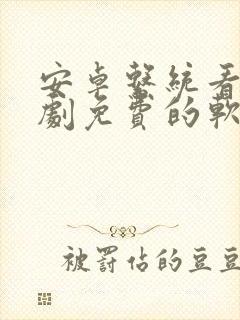 安卓繫統看
劇免費的軟
被罰佔的豆豆